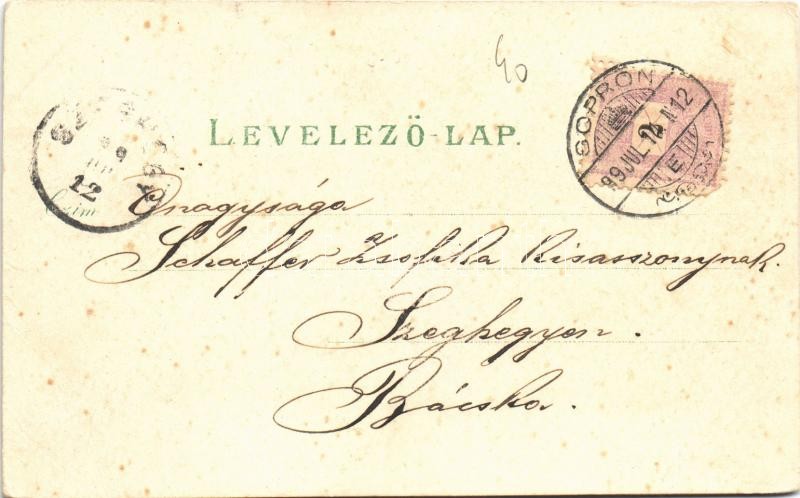 40
LEVELEZŐ-LAP.
SOPRON
99 JUL. 12 N 12
E
2
99
12
Czim
Önagysága
Schaffer Zsofika kisasszonynak.
Szeghegyen.
Bácska.